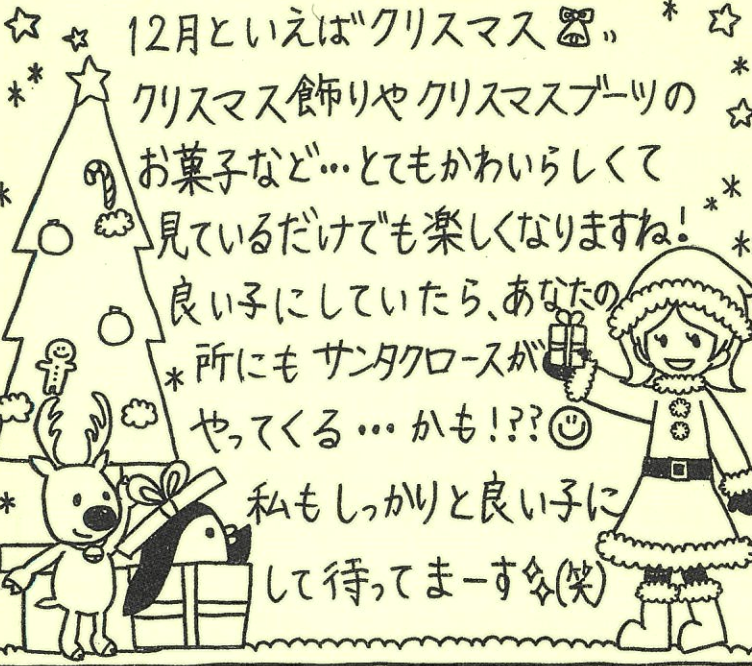 12月といえばクリスマス
クリスマス飾りやクリスマスブーツの
お菓子など…とてもかわいらしくて
見ているだけでも楽しくなりますね!
良い子にしていたら、あなたの
所にもサンタクロースが
やってくる…かも!??
私もしっかりと良い子に
して待ってまーす(笑)